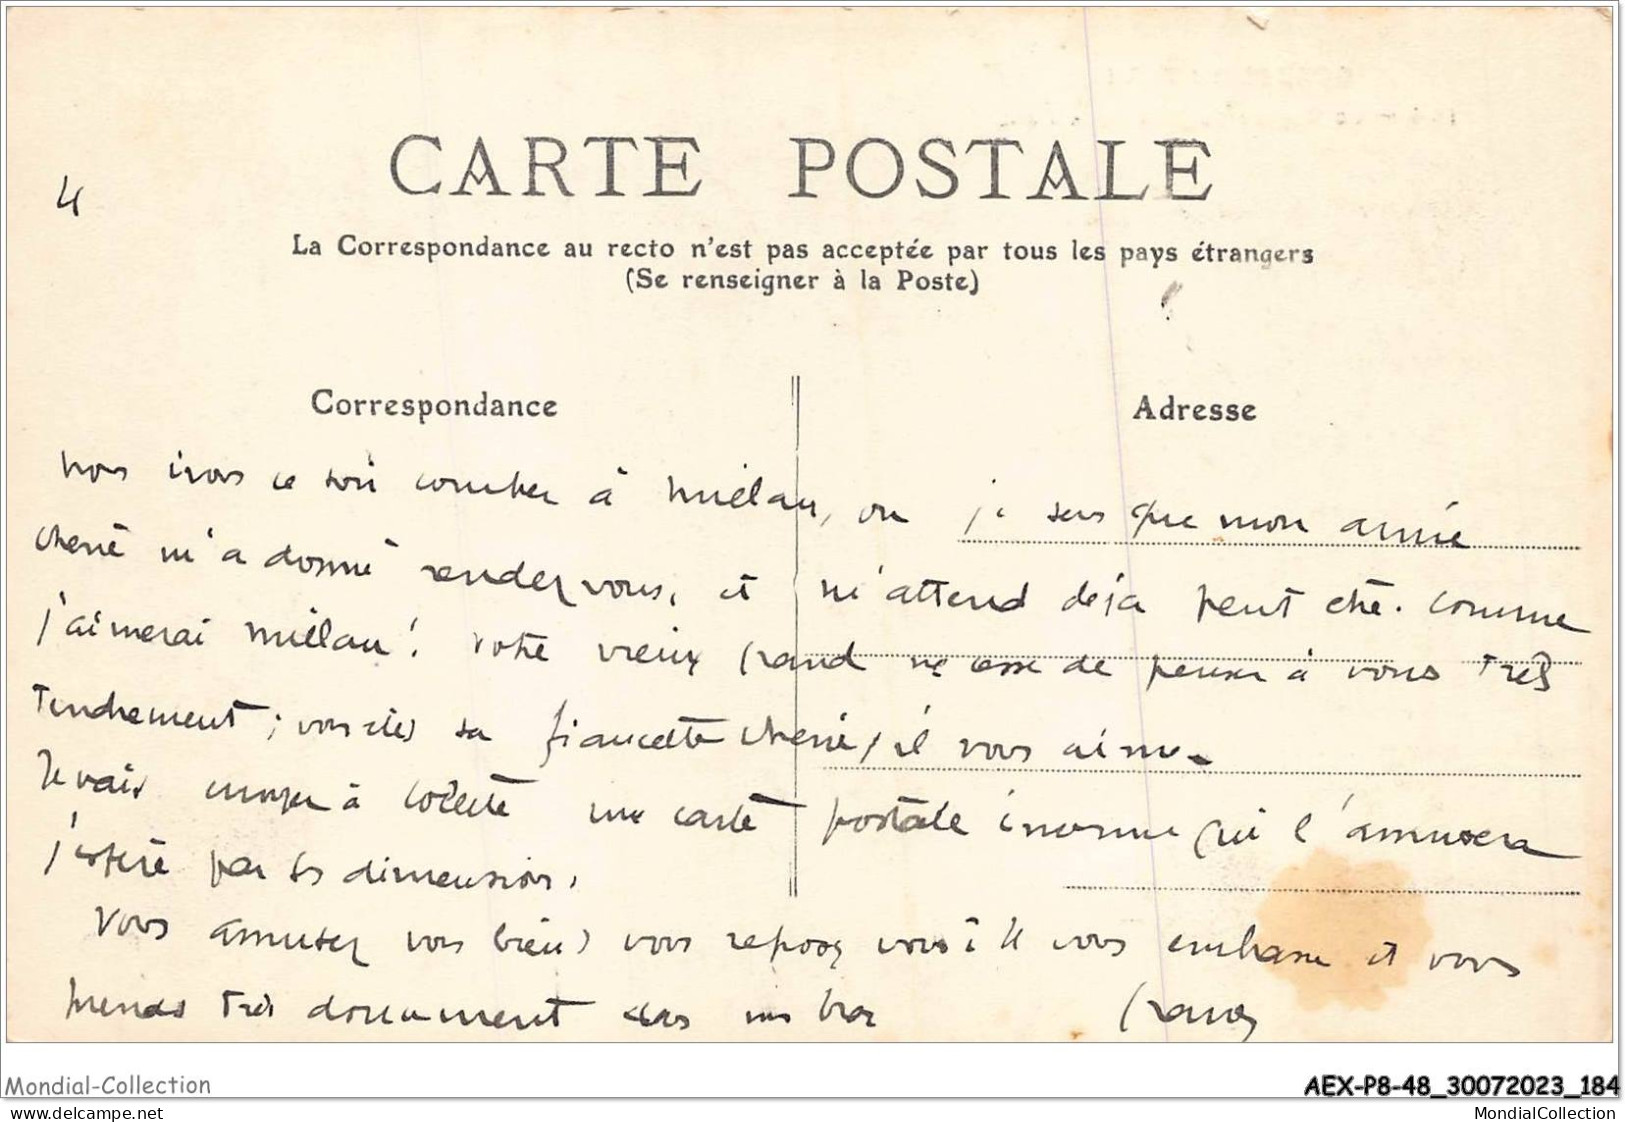 4
CARTE POSTALE
La Correspondance au recto n'est pas acceptée par tous les pays étrangers
(Se renseigner à la Poste)
Correspondance
Adresse
nous irons ce soir coucher à Millau, où je sens que mon amie
chérie m'a donné rendez vous, et m'attend déjà peut être. Comme
j'aimerai Millau! votre vieux Grand ne cesse de penser à vous très
tendrement; vous êtes sa fiancette chérie, il vous aime.
Je vais envoyer à Colette une carte postale énorme qui l'amusera
j'espère par ses dimensions.
Vous amusez vous bien, vous reposez vous? Je vous embrasse et vous
prends très doucement dans mes bras
Mondial-Collection
AEX-P8-48_30072023_184
www.delcampe.net
MondialCollection